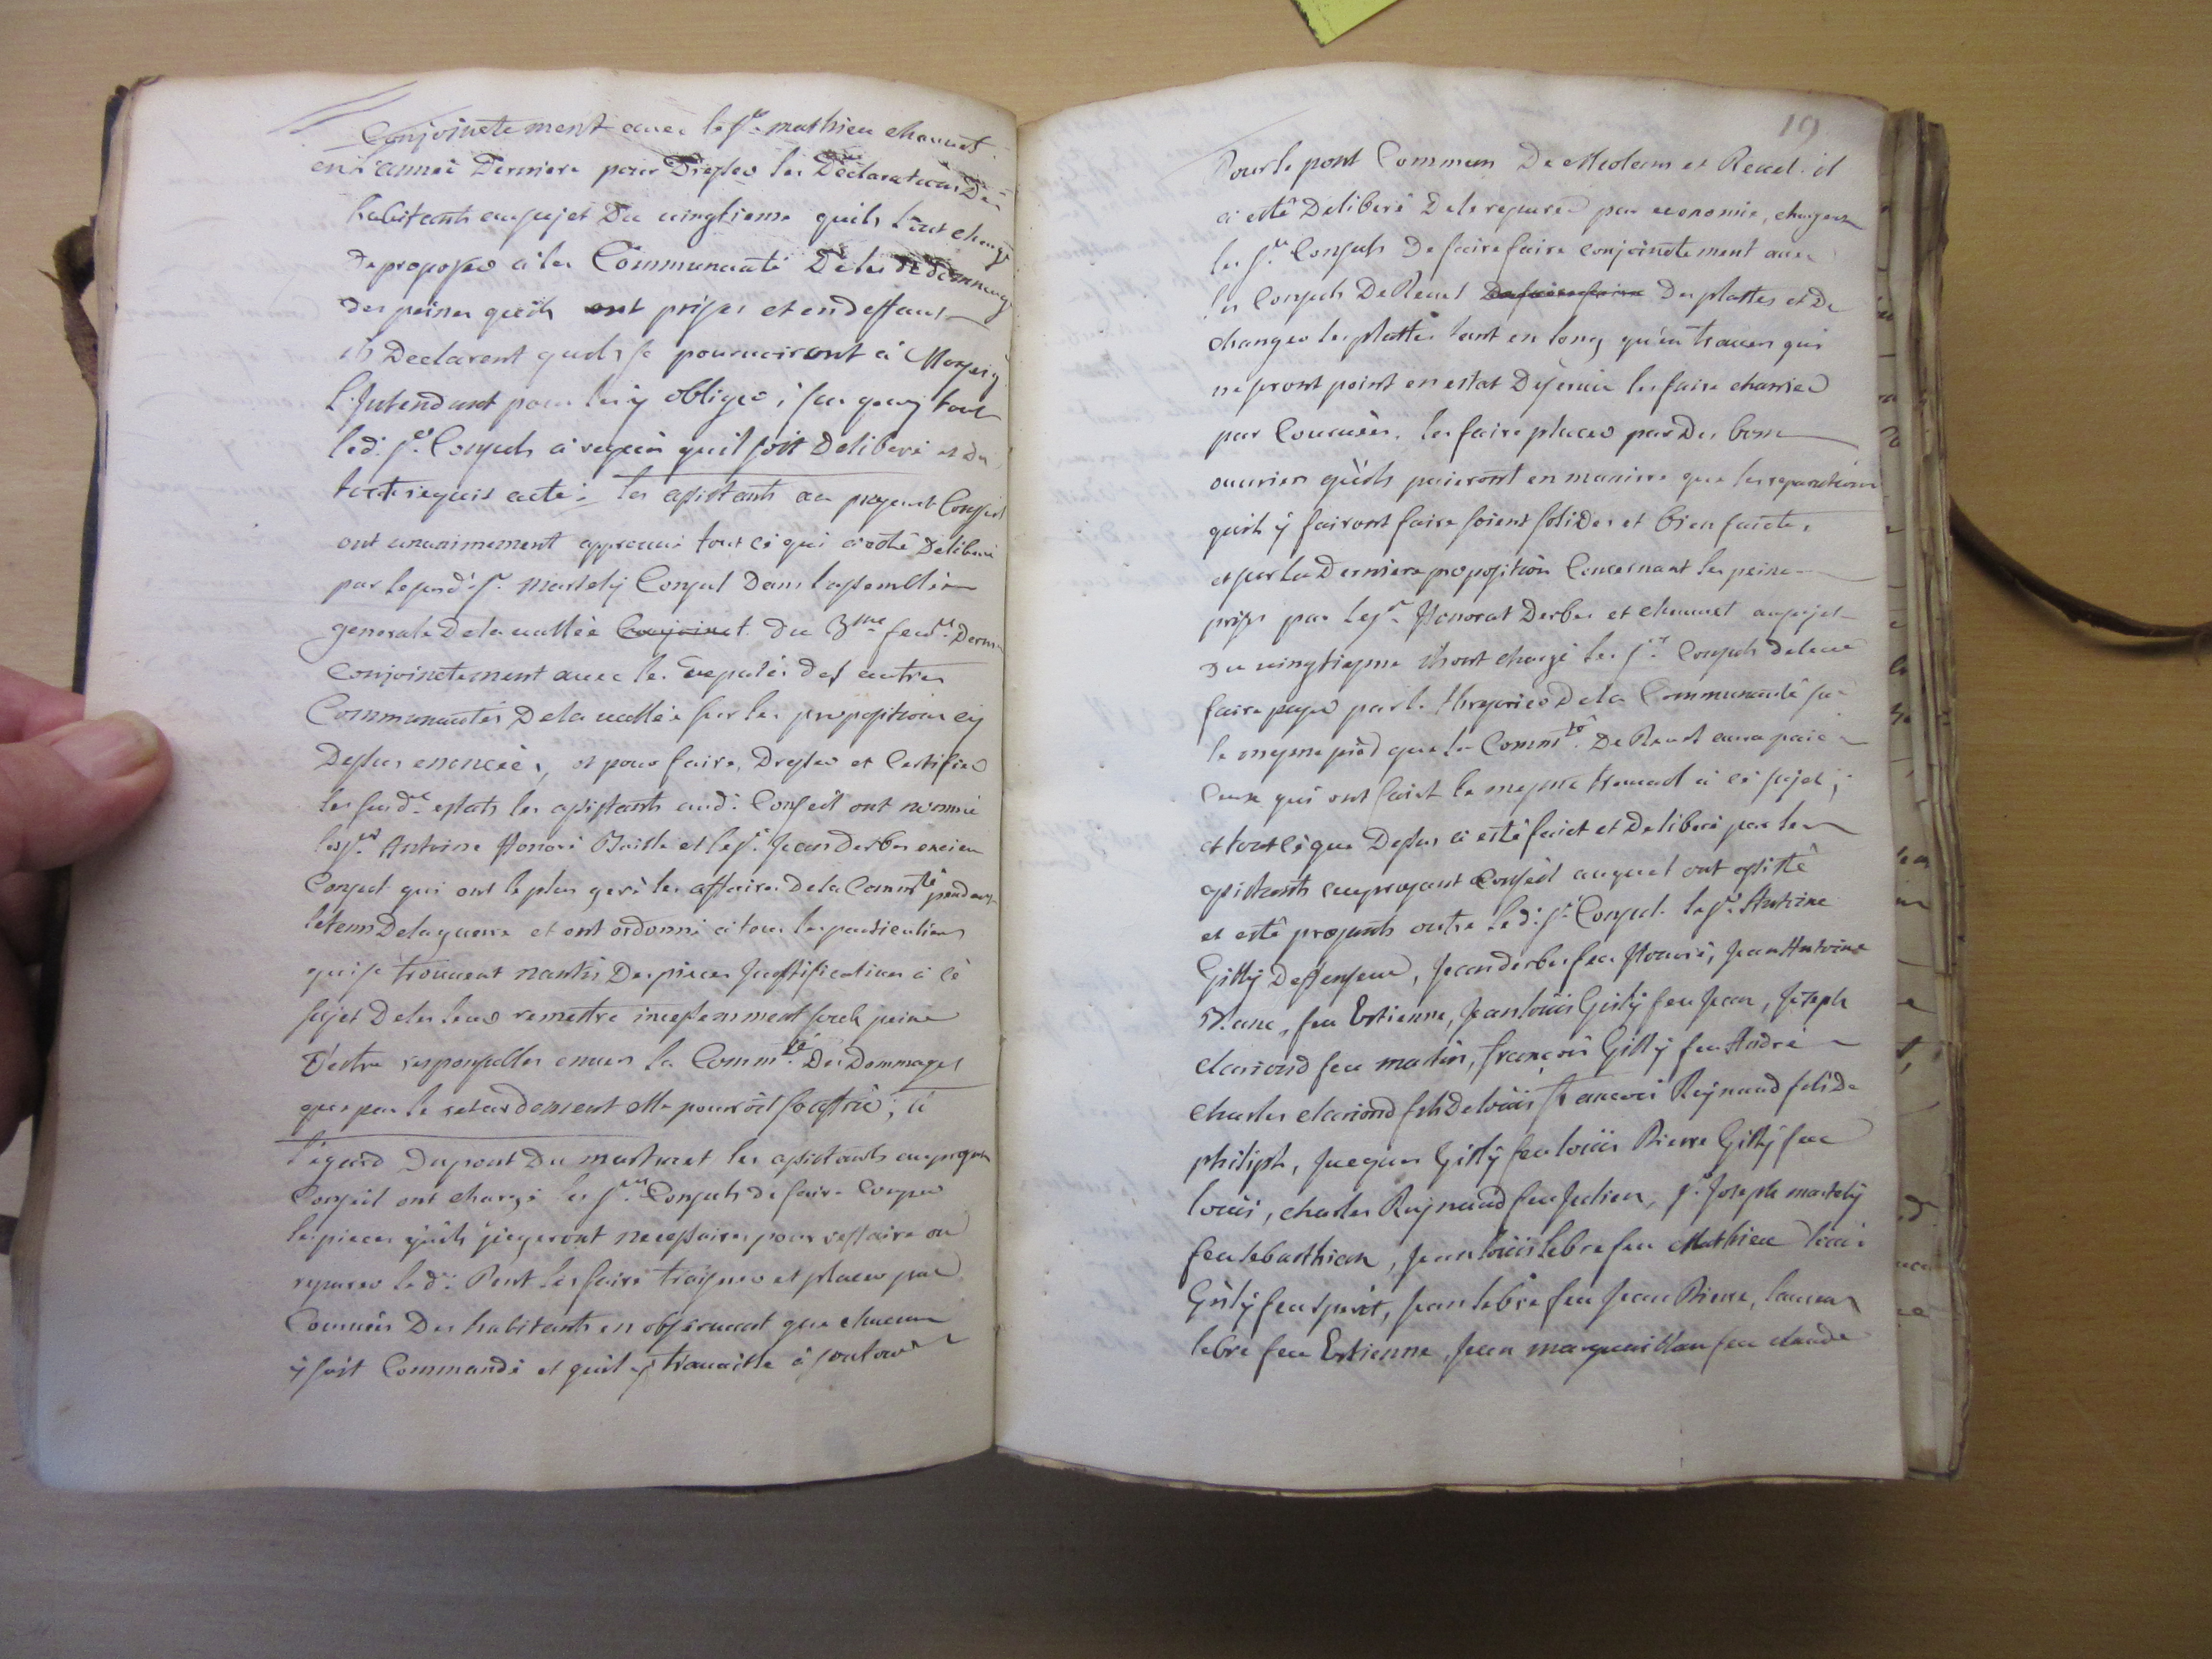 Conjoinctement avec le sr. mathieu chauvet
en l'année Derniere pour Dresser les Déclarations Des
habitants au sujet Du vingtieme quils l'ont chargé
de proposer a la Communauté De les dédommager
des peines quils ont prises et en deffaut
ils Declarent quils se pourvoiront à Monseigr.
L'Intendant pour les y obliger; sur quoy tout
led. sr. Consuls a requis quil soit Deliberé et du
tout requis acte; les assistants au present Conseil
ont unanimement approuvé tout ce qui a esté Deliberé
par le susd. sr. martely Consul Dans l'assemblée
generale De la vallée Conjoinct. du 3me. fevr. Dernr
conjoinctement avec les deputés des autres
Communautés De la vallée sur les propositions cy
Dessus enoncée, et pour faire, Dresser et Certifier
les susd. estats les assistants aud. Conseil ont nommé
les srs. Antoine Honoré et le sr. Jean Derbes ancien
Consul qui ont le plus geré les affaires De la Commté pendant
le tems De la guerre et ont ordonné à tous les particuliers
qui se trouvent nantis Des pieces Justificatives a cè
sujet De les leur remettre incessemment sous peine
D'estre responsables envers la Commté. Des Dommages
que par le retardement elle pourroit souffrir; à
l'egard Du pont Du les assistants au present
Conseil ont chargé les srs. Consuls de faire Couper
les pieces quils jugeront necessaires pour reffaire ou
reparer led. Pont les faire traisner et placer par
Corvées Des habitants en observant que chacun
y soit Commandé et quil y travaille à son tour
19
Pour le pont Commun De Meolans et Revel il
a esté Deliberé De le reparer par economie, chargeant
les srs. Consuls De faire faire conjoinctement avec
les Consuls De Revel De faire faire Des plattes et De
changer les plattes tant en long qu'en travers qui
ne seront point en estat De servir les faire charrier
par Courvées, les faire placer par Des bons
ouvriers qu'ils paieront en maniere que les reparations
quils y fairont faire soient solides et bien faictes,
et sur la Derniere proposition Concernant les peines
prises par les srs. Honorat Derbes et chauvet au sujet
Du vingtiesme ils ont chargé les srs. Consuls de leur
faire payer par le thresorier De la Communauté sur
le mesme pièd que la Commté. De Revel aura paié
Ceux qui ont faict le mesme travail a cè sujet;
et tout cè que Dessus a esté faict et Deliberé par les
assistants au present Conseil auquel ont assisté
et esté presents outre led. sr. Consul. le sr. Antoine
Gilly Deffenseur, Jean derbes feu Honoré, Jean Antoine
Blanc, feu Estienne, Jean louis Gilly feu Jean, Joseph
clariond feu martin, françois Gilly feu André
charles clariond fils De louis françois Reynaud fils De
philiph, Jacques Gilly feu louis Pierre Gilly feu
louis, charles Reynaud feu Julien, sr. Joseph martely
feu sebasthian, Jean louis lebre feu Mathieu louis
Gilly feu spirit, Jean lebre feu Jean Pierre, laurens
lebre feu Estienne, Jean feu claude